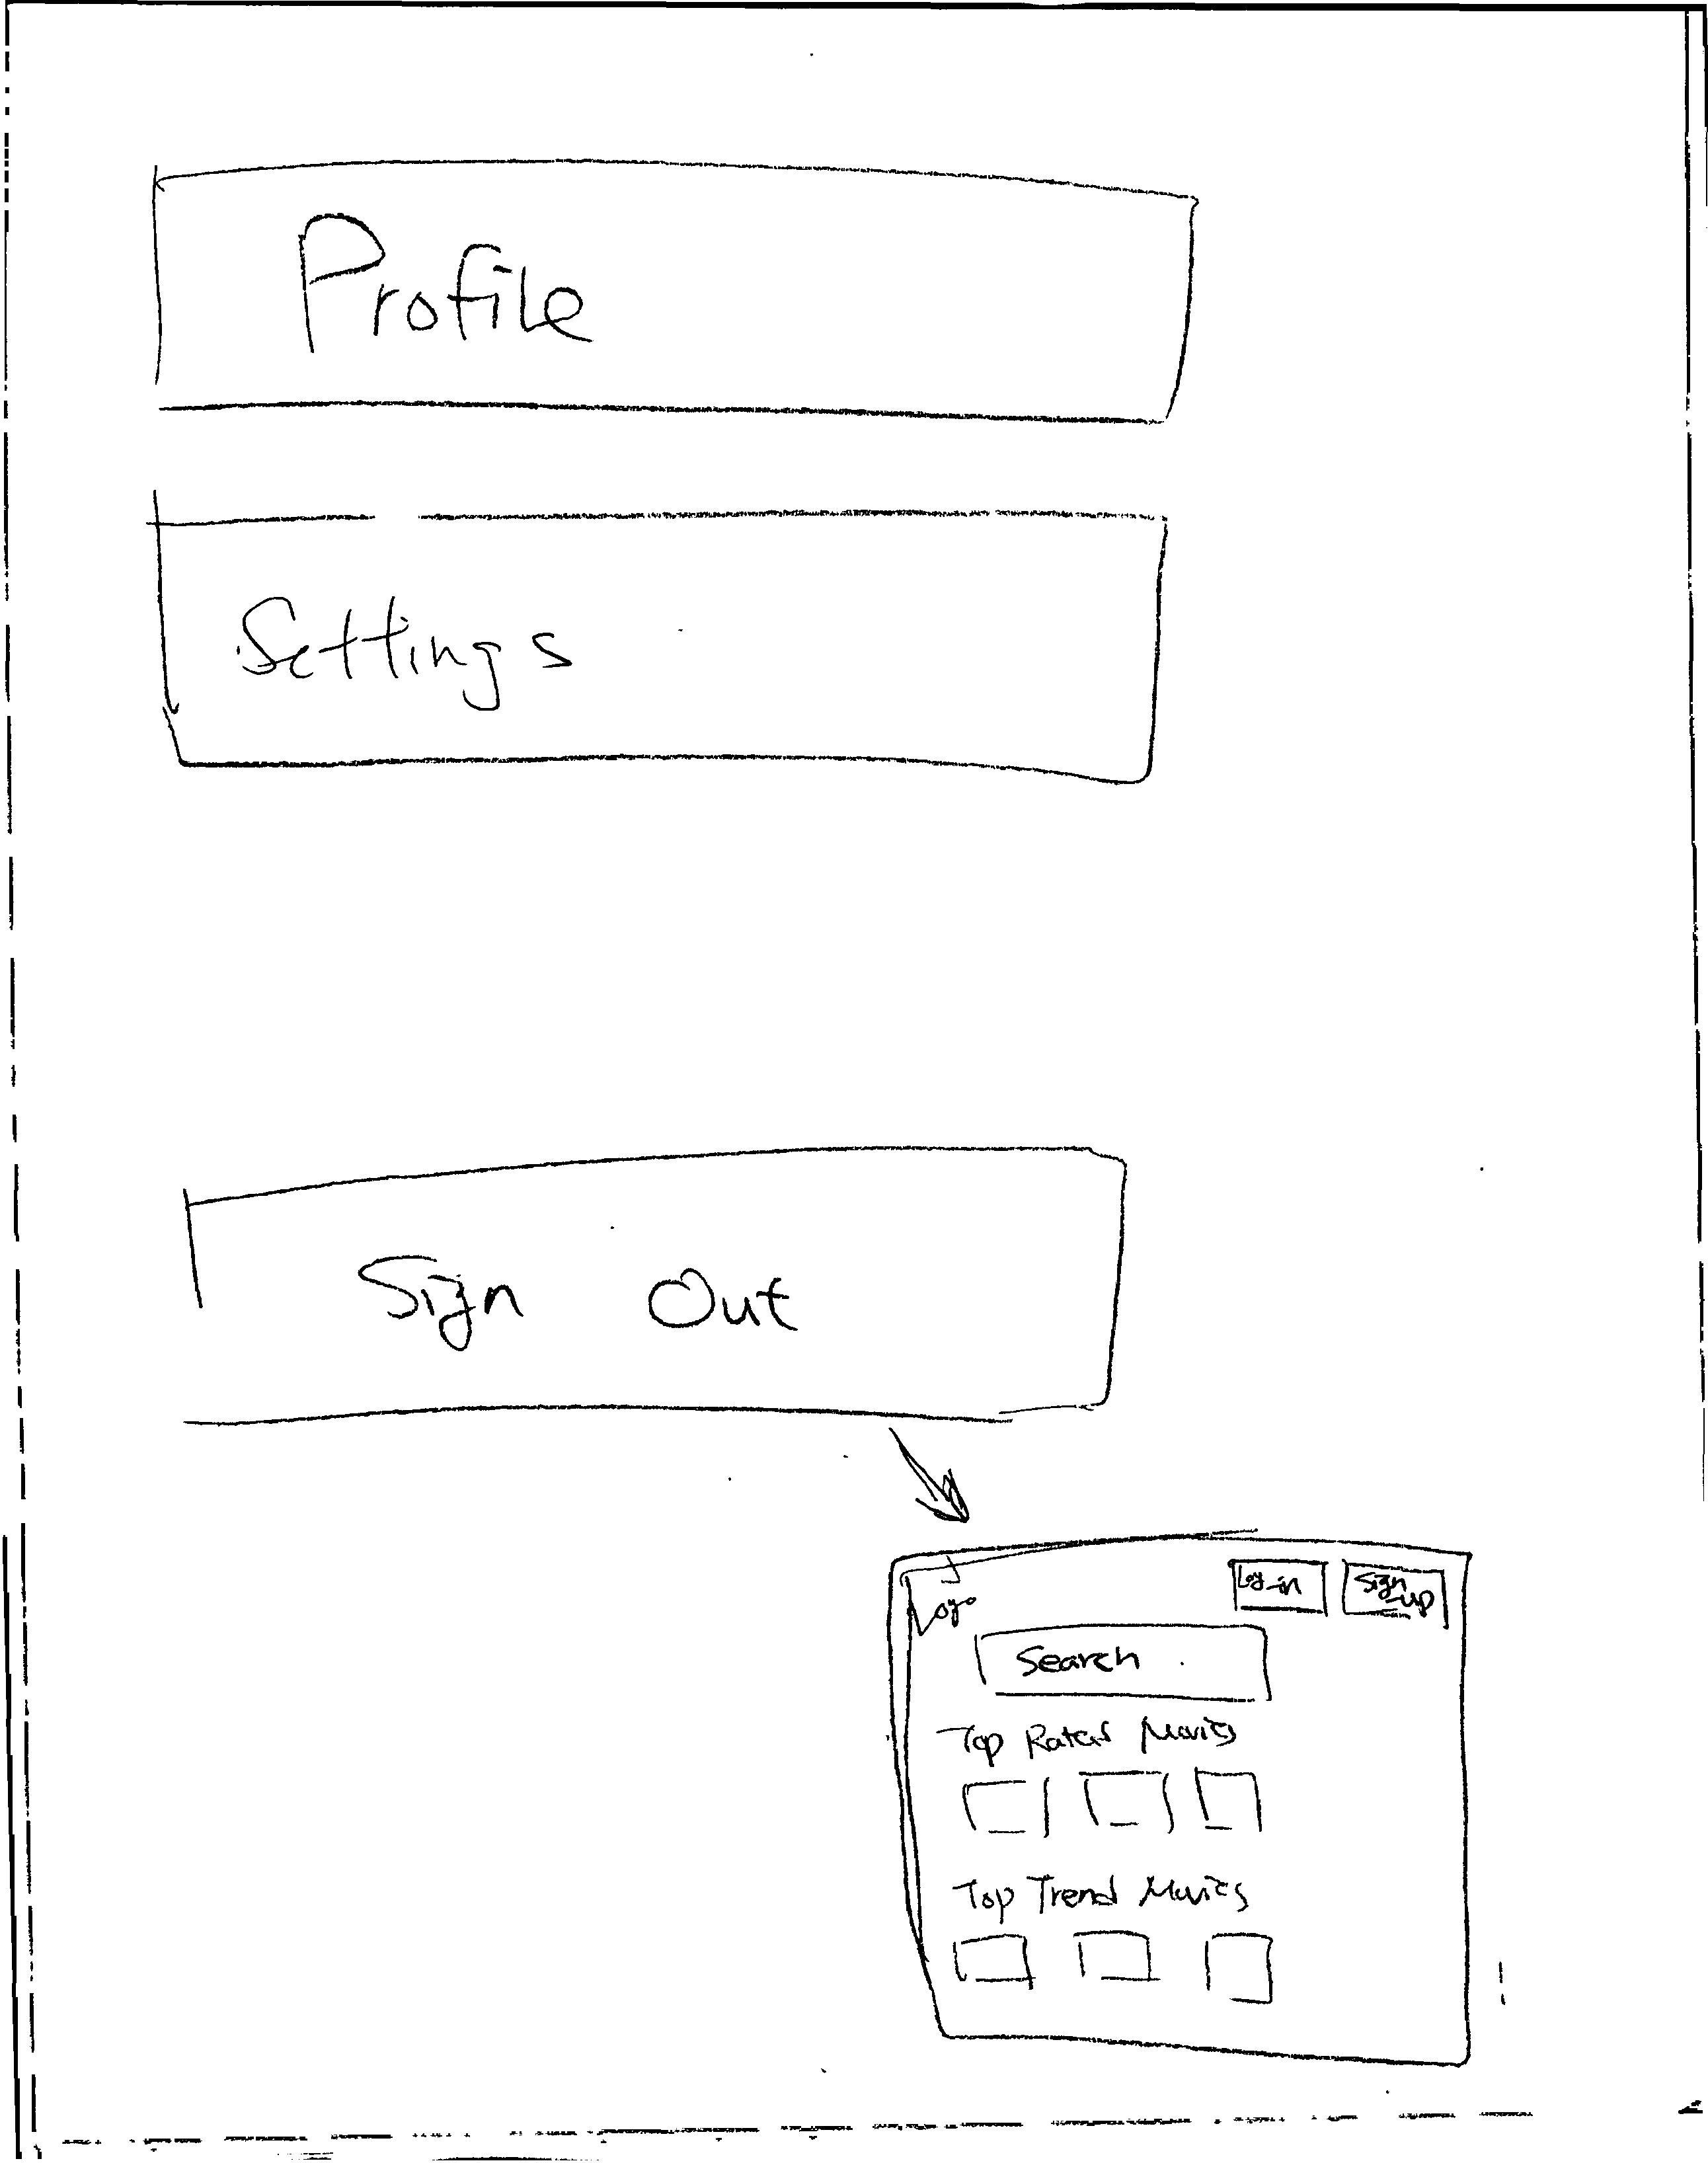 Profile
Settings
Sign Out
Logo
Log-in
Sign up
Search
Top Rated Movies
Top Trend Movies